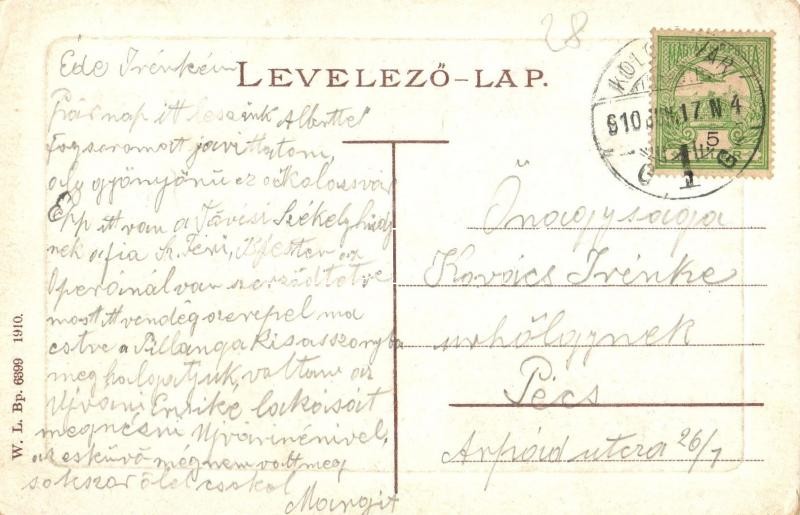 28
LEVELEZŐ-LAP.
Éde Irénkém
Pár nap itt leszünk Alberttel
fogsoromat javíttatom,
oly gyönyörű ez a Kolozsvár
Épp itt van a Távisi Székelyhidy
nek a fia Feri, Bpesten az
Operánál van szerződtetve
most itt vendég szerepel ma
estve a Pillangó kisasszonyba
meghalgatjuk, voltam az
Ujvári Enrike lakását
megnézni Ujvárinénivel,
az esküvő még nem volt meg
sokszor ölel csokol
Margit
KOLOZSVÁR
910 17 N 4
1
MAGYAR KIR. POSTA
5
Őnagysága
Kovács Irénke
urhölgynek
Pécs
Árpád utcza 26/1
W. L. Bp. 6399 1910.